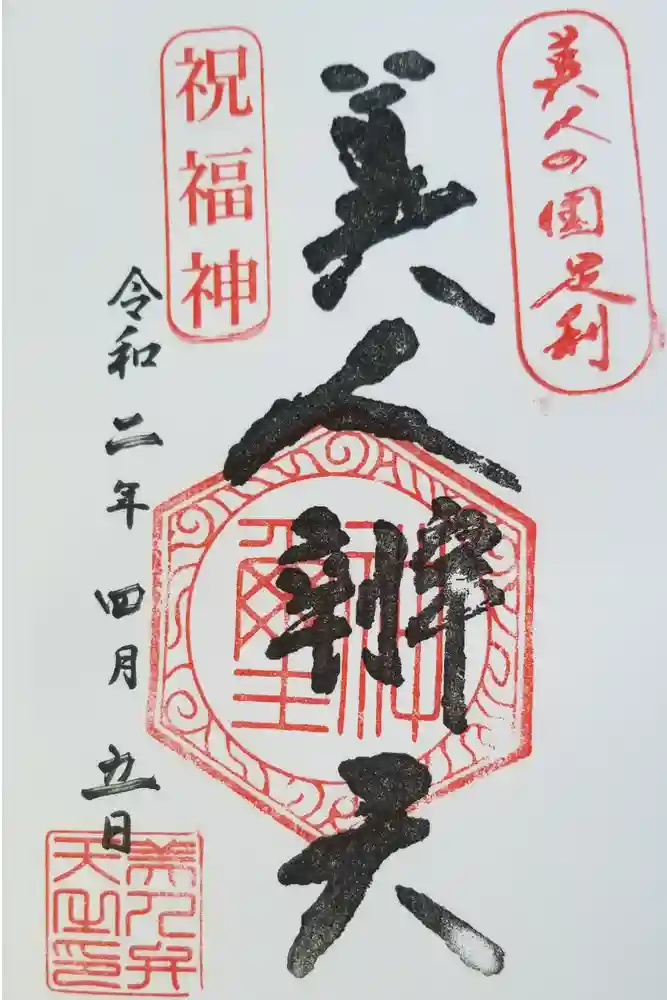 美人の国足利
美人辨天
祝福神
令和二年 四月 五日
美人弁
天之印